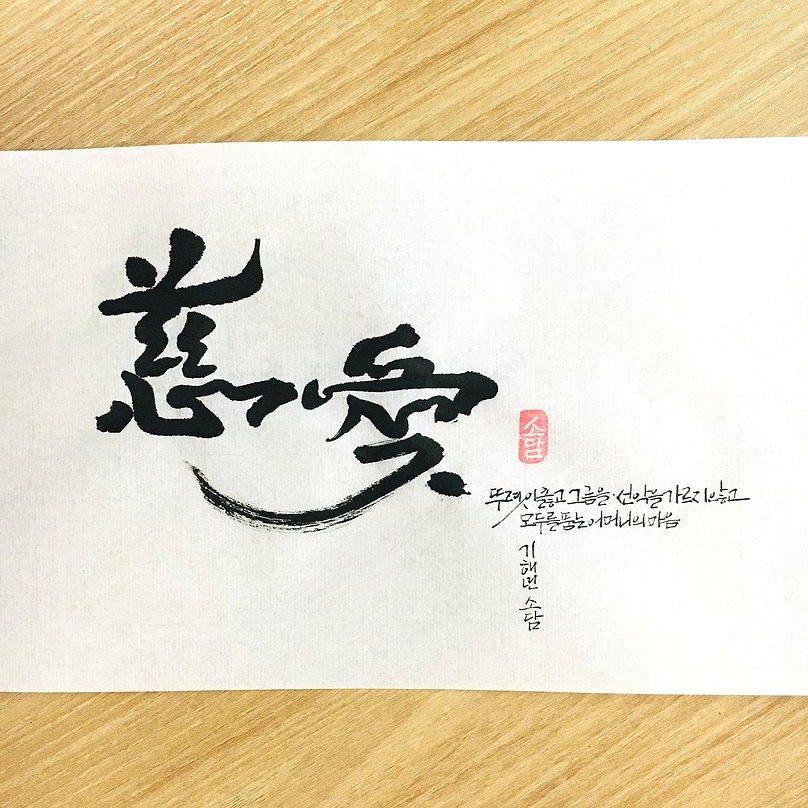 慈愛
소담
뚜렷이 옳고 그름을·선악을 가르지 않고
모두를 품는 어머니의 마음
기해년 소담